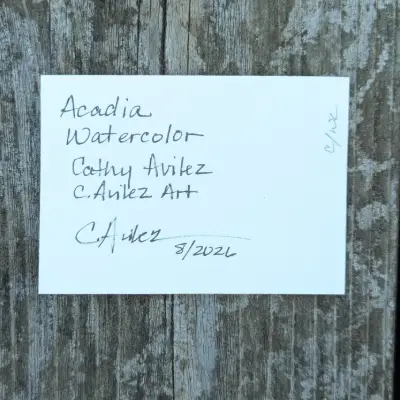 Acadia
Watercolor
Cathy Avilez
C. Avilez Art
C. Avilez
8/2026